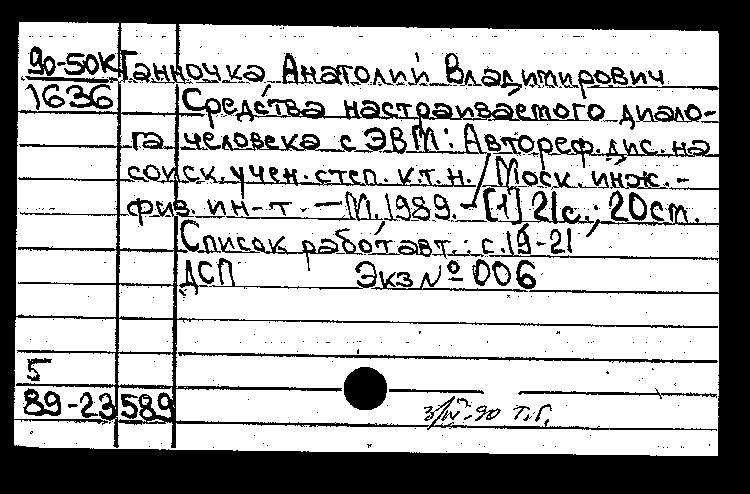 90-50К Ганночка, Анатолий Владимирович
1636 Средства настраиваемого диало-
га человека с ЭВМ: Автореф. дис. на
соиск. учен. степ. к.т.н. / Моск. инж.-
физ. ин-т. — М., 1989. — [1] 21 с.; 20 см.
Список работ авт.: с. 19-21
ДСП Экз № 006
5
89-23589
3/IV-90 Т.Г.